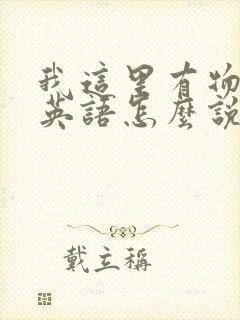 我這里有物
英語怎麼說
戴立稱